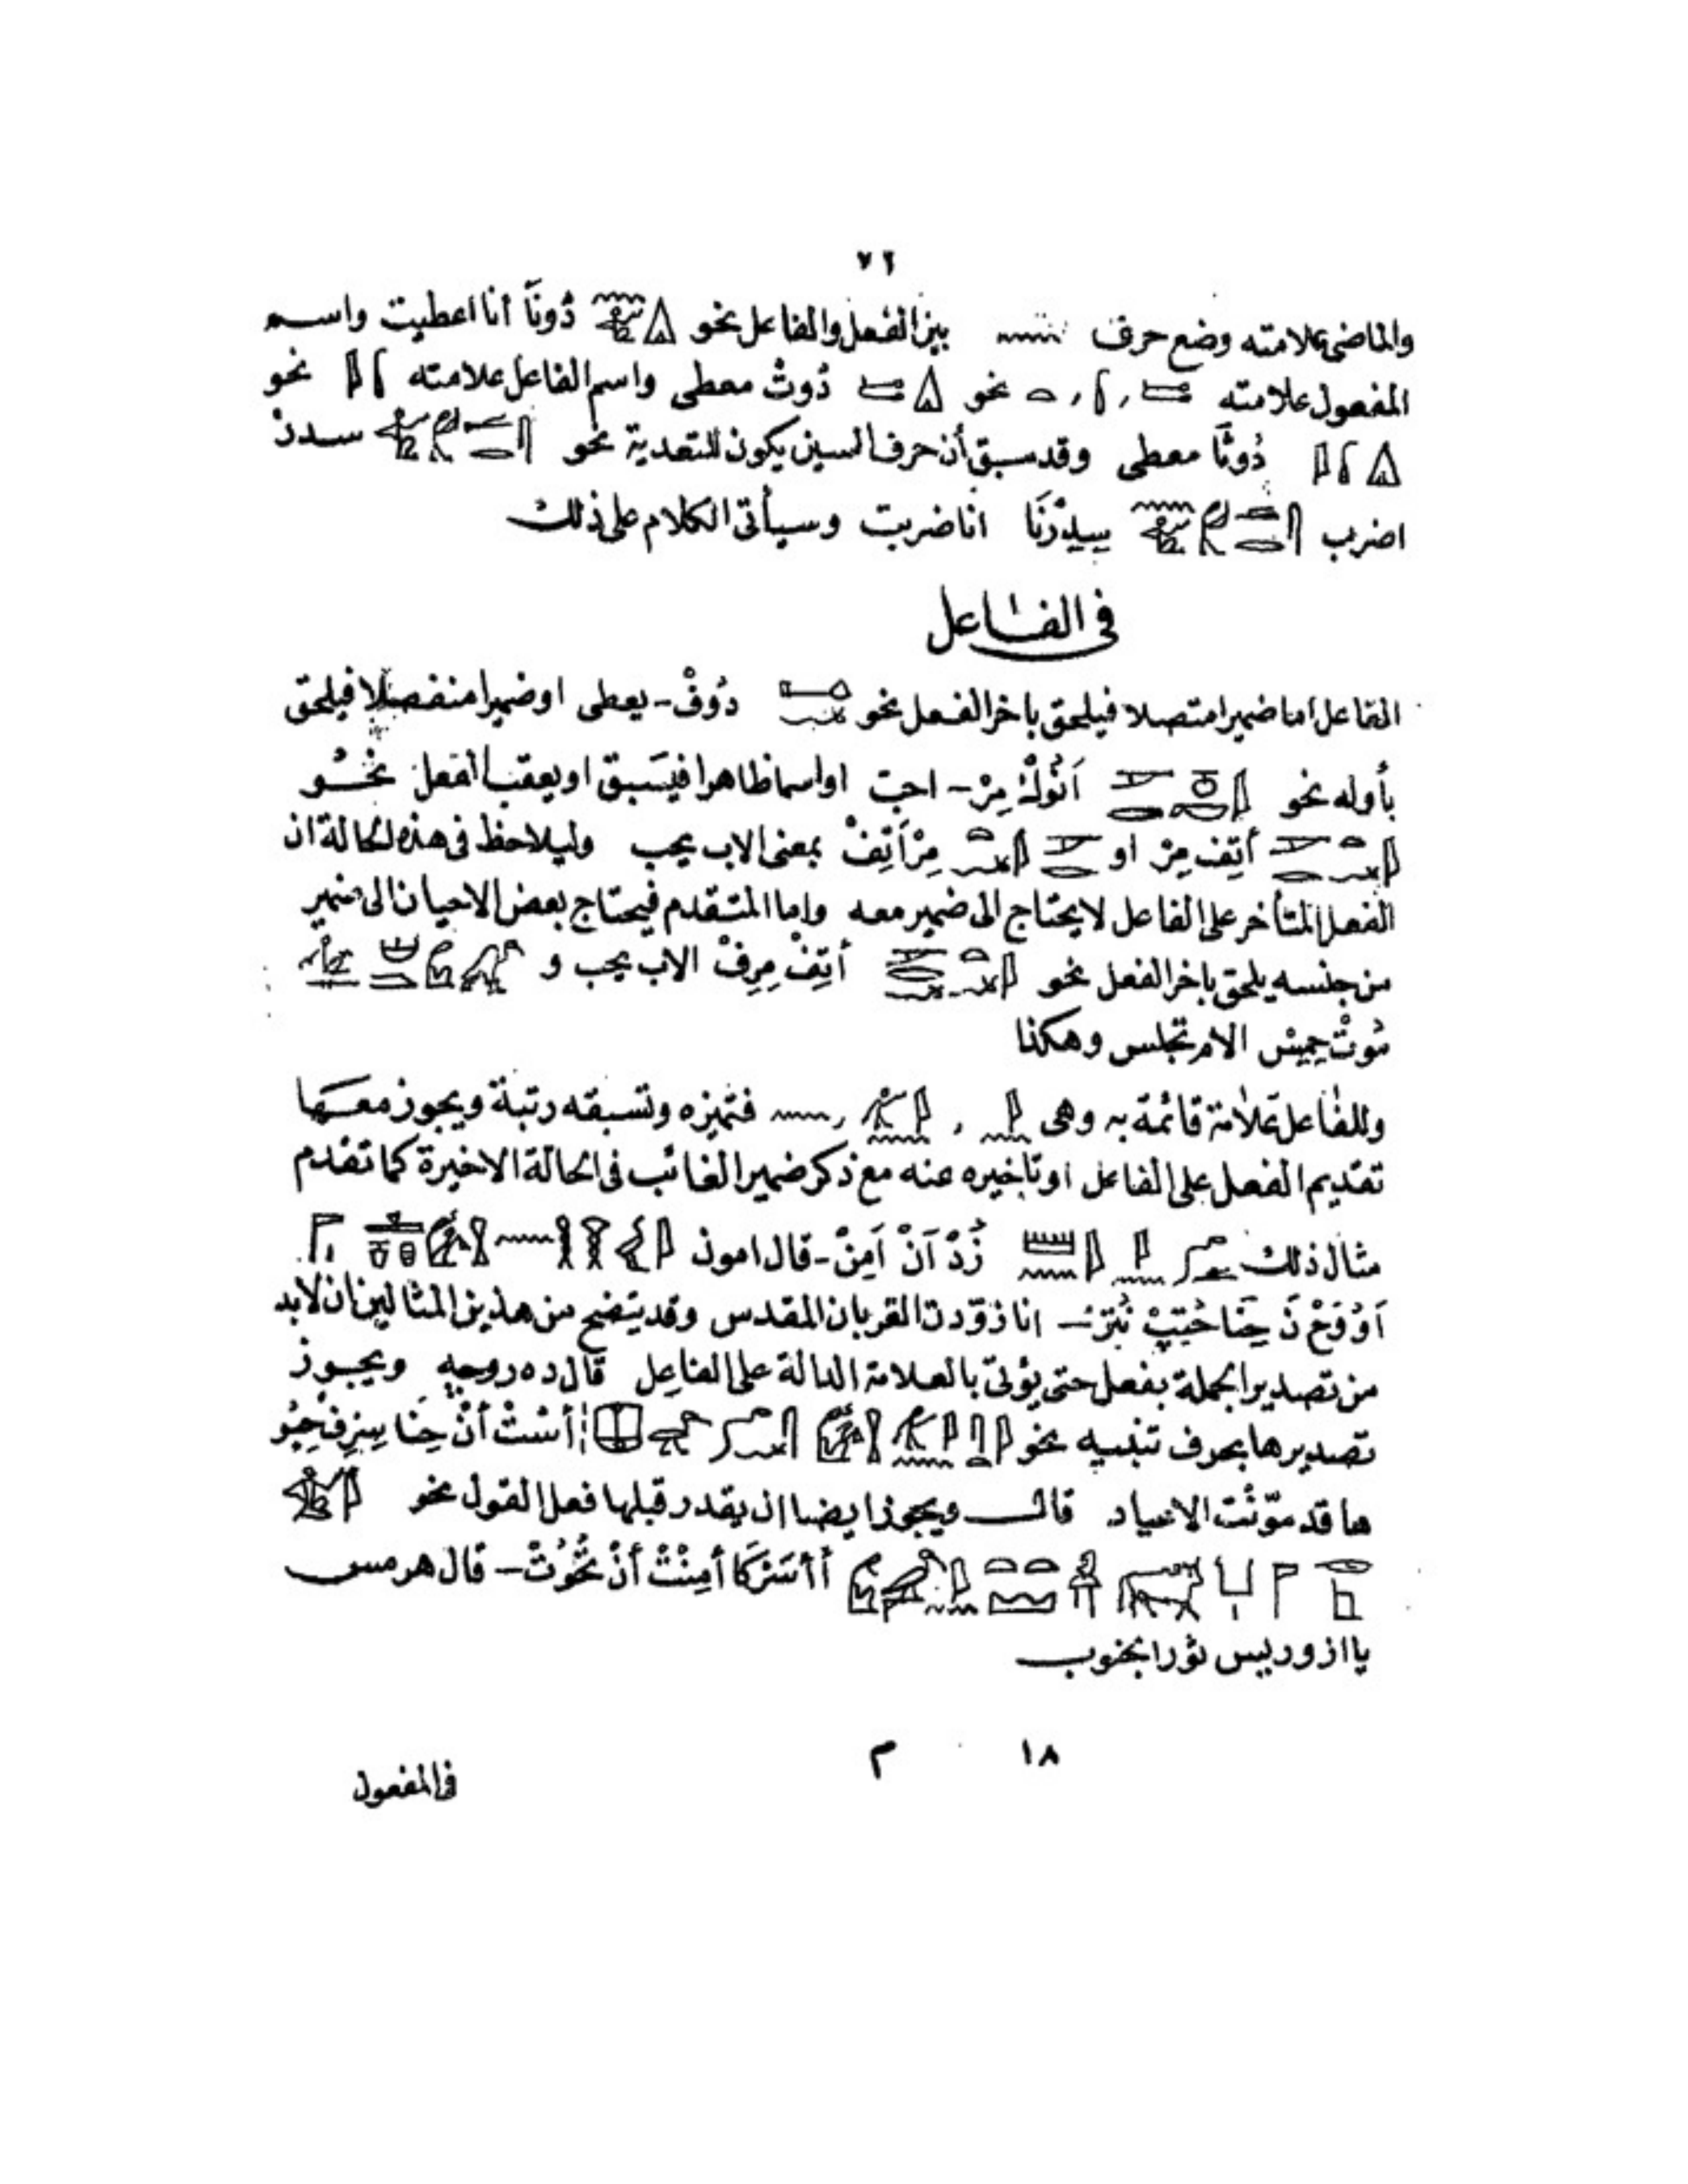 ٧٢
والماضى علامته وضع حرف 𓈖 بين الفعل والفاعل نحو دُونَا أنا اعطيت واسم
المفعول علامته نحو دُوتْ معطى واسم الفاعل علامته نحو
دُوتَا معطى وقد سبق أن حرف السين يكون للتعدية نحو سدر
اضرب انا ضربت وسيأتى الكلام على ذلك
فى الفاعل
الفاعل اما ضميرا متصلا فيلحق باخر الفعل نحو دُوفْ - يعطى او ضميرا منفصلا فيلحق
بأوله نحو اَنُوكْ مِرْ - احب او اسما ظاهرا فيسبق او يعقب الفعل نحو
أتِف مِرْ او مِرْ أَتِفْ بمعنى الاب يحب وليلاحظ فى هذه الحالة ان
الفعل المتأخر على الفاعل لا يحتاج الى ضمير معه واما المتقدم فيحتاج بعض الاحيان الى ضمير
من جنسه يلحق باخر الفعل نحو أَتِفْ مِرِفْ الاب يحب و
مُوتْ حِمِسْ الام تجلس وهكذا
وللفاعل علامة قائمة به وهى فتميزه وتسبقه رتبة ويجوز معها
تقديم الفعل على الفاعل او تاخيره عنه مع ذكر ضمير الغائب فى الحالة الاخيرة كما تقدم
مثال ذلك زُدْ اَنْ اَمِنْ - قال امون
انا زوّدت القربان المقدس وقد يتضح من هذين المثالين ان لابد
من تصدير الجملة بفعل حتى يؤتى بالعلامة الدالة على الفاعل قال ده روجيه ويجوز
تصديرها بحرف تنبيه نحو أسْتْ أَنْ حِنَا
ها قد موّنت الاعياد قال ويجوز ايضا ان يقدر قبلها فعل القول نحو
أَنْ تُحُوتْ - قال هرمس
يا ازوريس ثور الجنوب
١٨ م
فى المفعول